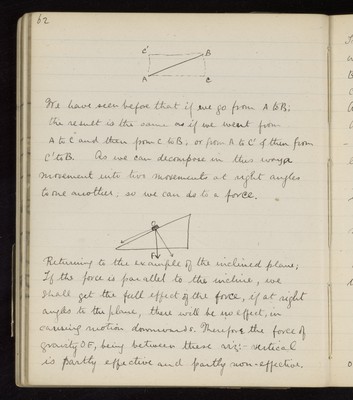 62
C' B
A C
We have seen before that if we go from A to B;
the result is the same as if we went from
A to C and then from C to B; or from A to C' & then from
C' to B. As we can decompose in this way a
movement into two movements at right angles
to one another, so we can do to a force.
O
F
Returning to the example of the inclined plane;
If the force is parallel to the incline, we
shall get the full effect of the force, if at right
angles to the plane, there will be no effect, in
causing motion downwards. Therefore the force of
gravity OF, being between these viz:- vertical
is partly effective and partly non-effective.